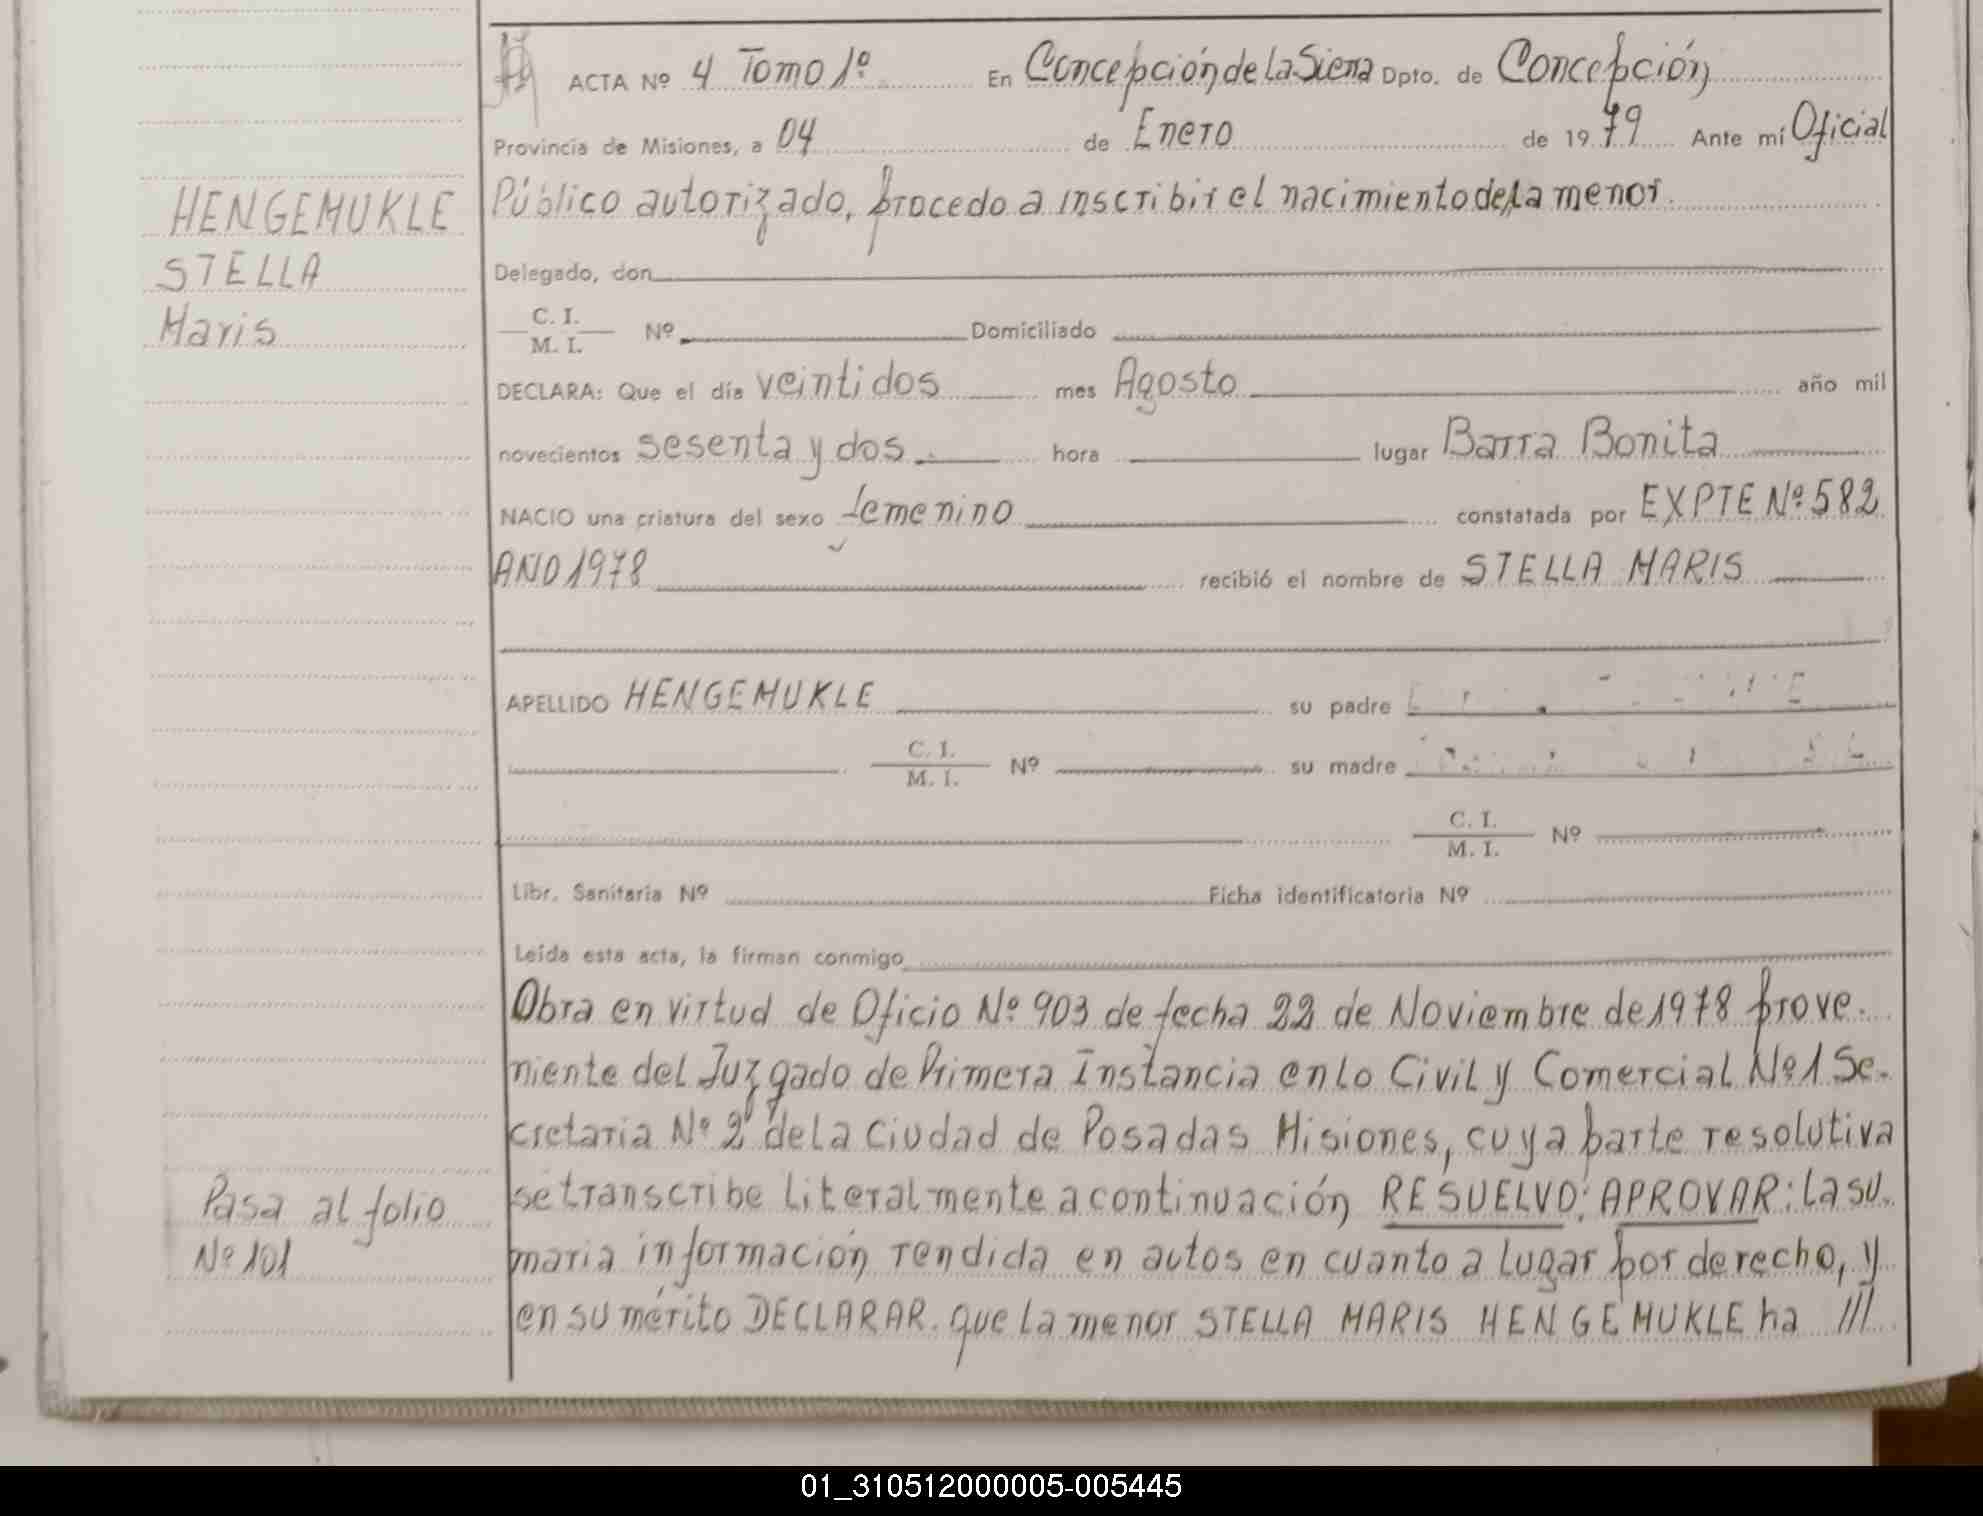 ACTA Nº 4 Tomo 1º En Concepción de La Sierra Dpto. de Concepción
Provincia de Misiones, a 04 de Enero de 1979 Ante mí Oficial
Público autorizado, procedo a inscribir el nacimiento de la menor.
Delegado, don
C. I.
M. I.
Nº Domiciliado
DECLARA: Que el día veintidos mes Agosto año mil
novecientos sesenta y dos hora lugar Barra Bonita
NACIO una criatura del sexo femenino constatada por EXPTE Nº 582
AÑO 1978 recibió el nombre de STELLA MARIS
APELLIDO HENGEMUKLE su padre
C. I.
M. I.
Nº su madre
C. I.
M. I.
Nº
Libr. Sanitaria Nº Ficha identificatoria Nº
Leída esta acta, la firman conmigo
Obra en virtud de Oficio Nº 903 de fecha 22 de Noviembre de 1978 prove.
niente del Juzgado de Primera Instancia en lo Civil y Comercial Nº 1 Se.
cretaria Nº 2 de la ciudad de Posadas Misiones, cuya parte resolutiva
se transcribe literalmente a continuación RESUELVO: APROVAR: La su.
maria información rendida en autos en cuanto a lugar por derecho, y
en su mérito DECLARAR. que la menor STELLA MARIS HENGEMUKLE ha ///
HENGEMUKLE
STELLA
Maris
Pasa al folio
Nº 101
01_310512000005-005445